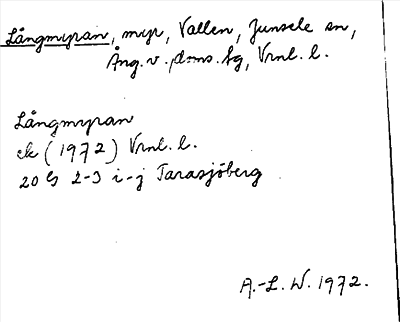 Långmyran, myr, Vallen, Junsele sn,
Ång. v. doms. sg, Vrnl. l.
Långmyran
ek (1972) Vrnl. l.
20 G 2-3 i-j Tarasjöberg
A.-L. W. 1972.